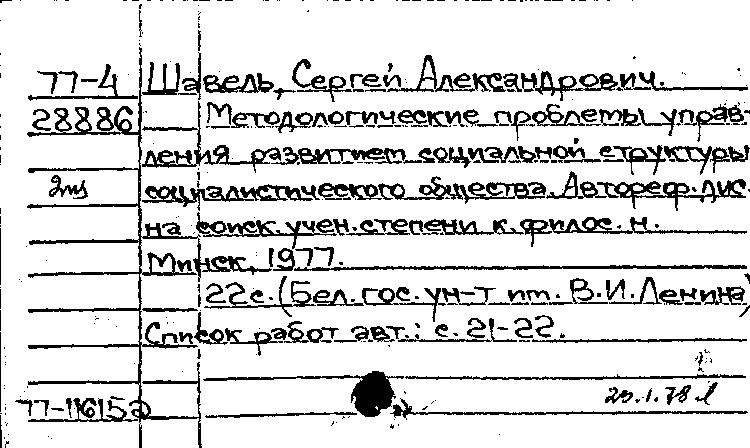 77-4 Шавель, Сергей Александрович.
28886 Методологические проблемы управ-
ления развитием социальной структуры
социалистического общества. Автореф. дис.
на соиск. учен. степени к. филос. н.
Минск, 1977.
22с. (Бел. гос. ун-т им. В.И. Ленина)
Список работ авт.: с. 21-22.
77-11615а